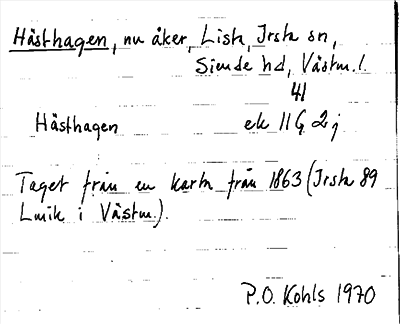 Hästhagen, nu åker, Lista, Irsta sn,
Siende hd, Västm. l.
41
Hästhagen ek 11G 2j
Taget från en karta från 1863 (Irsta 89
Lmik i Västm.).
P.O. Kohls 1970